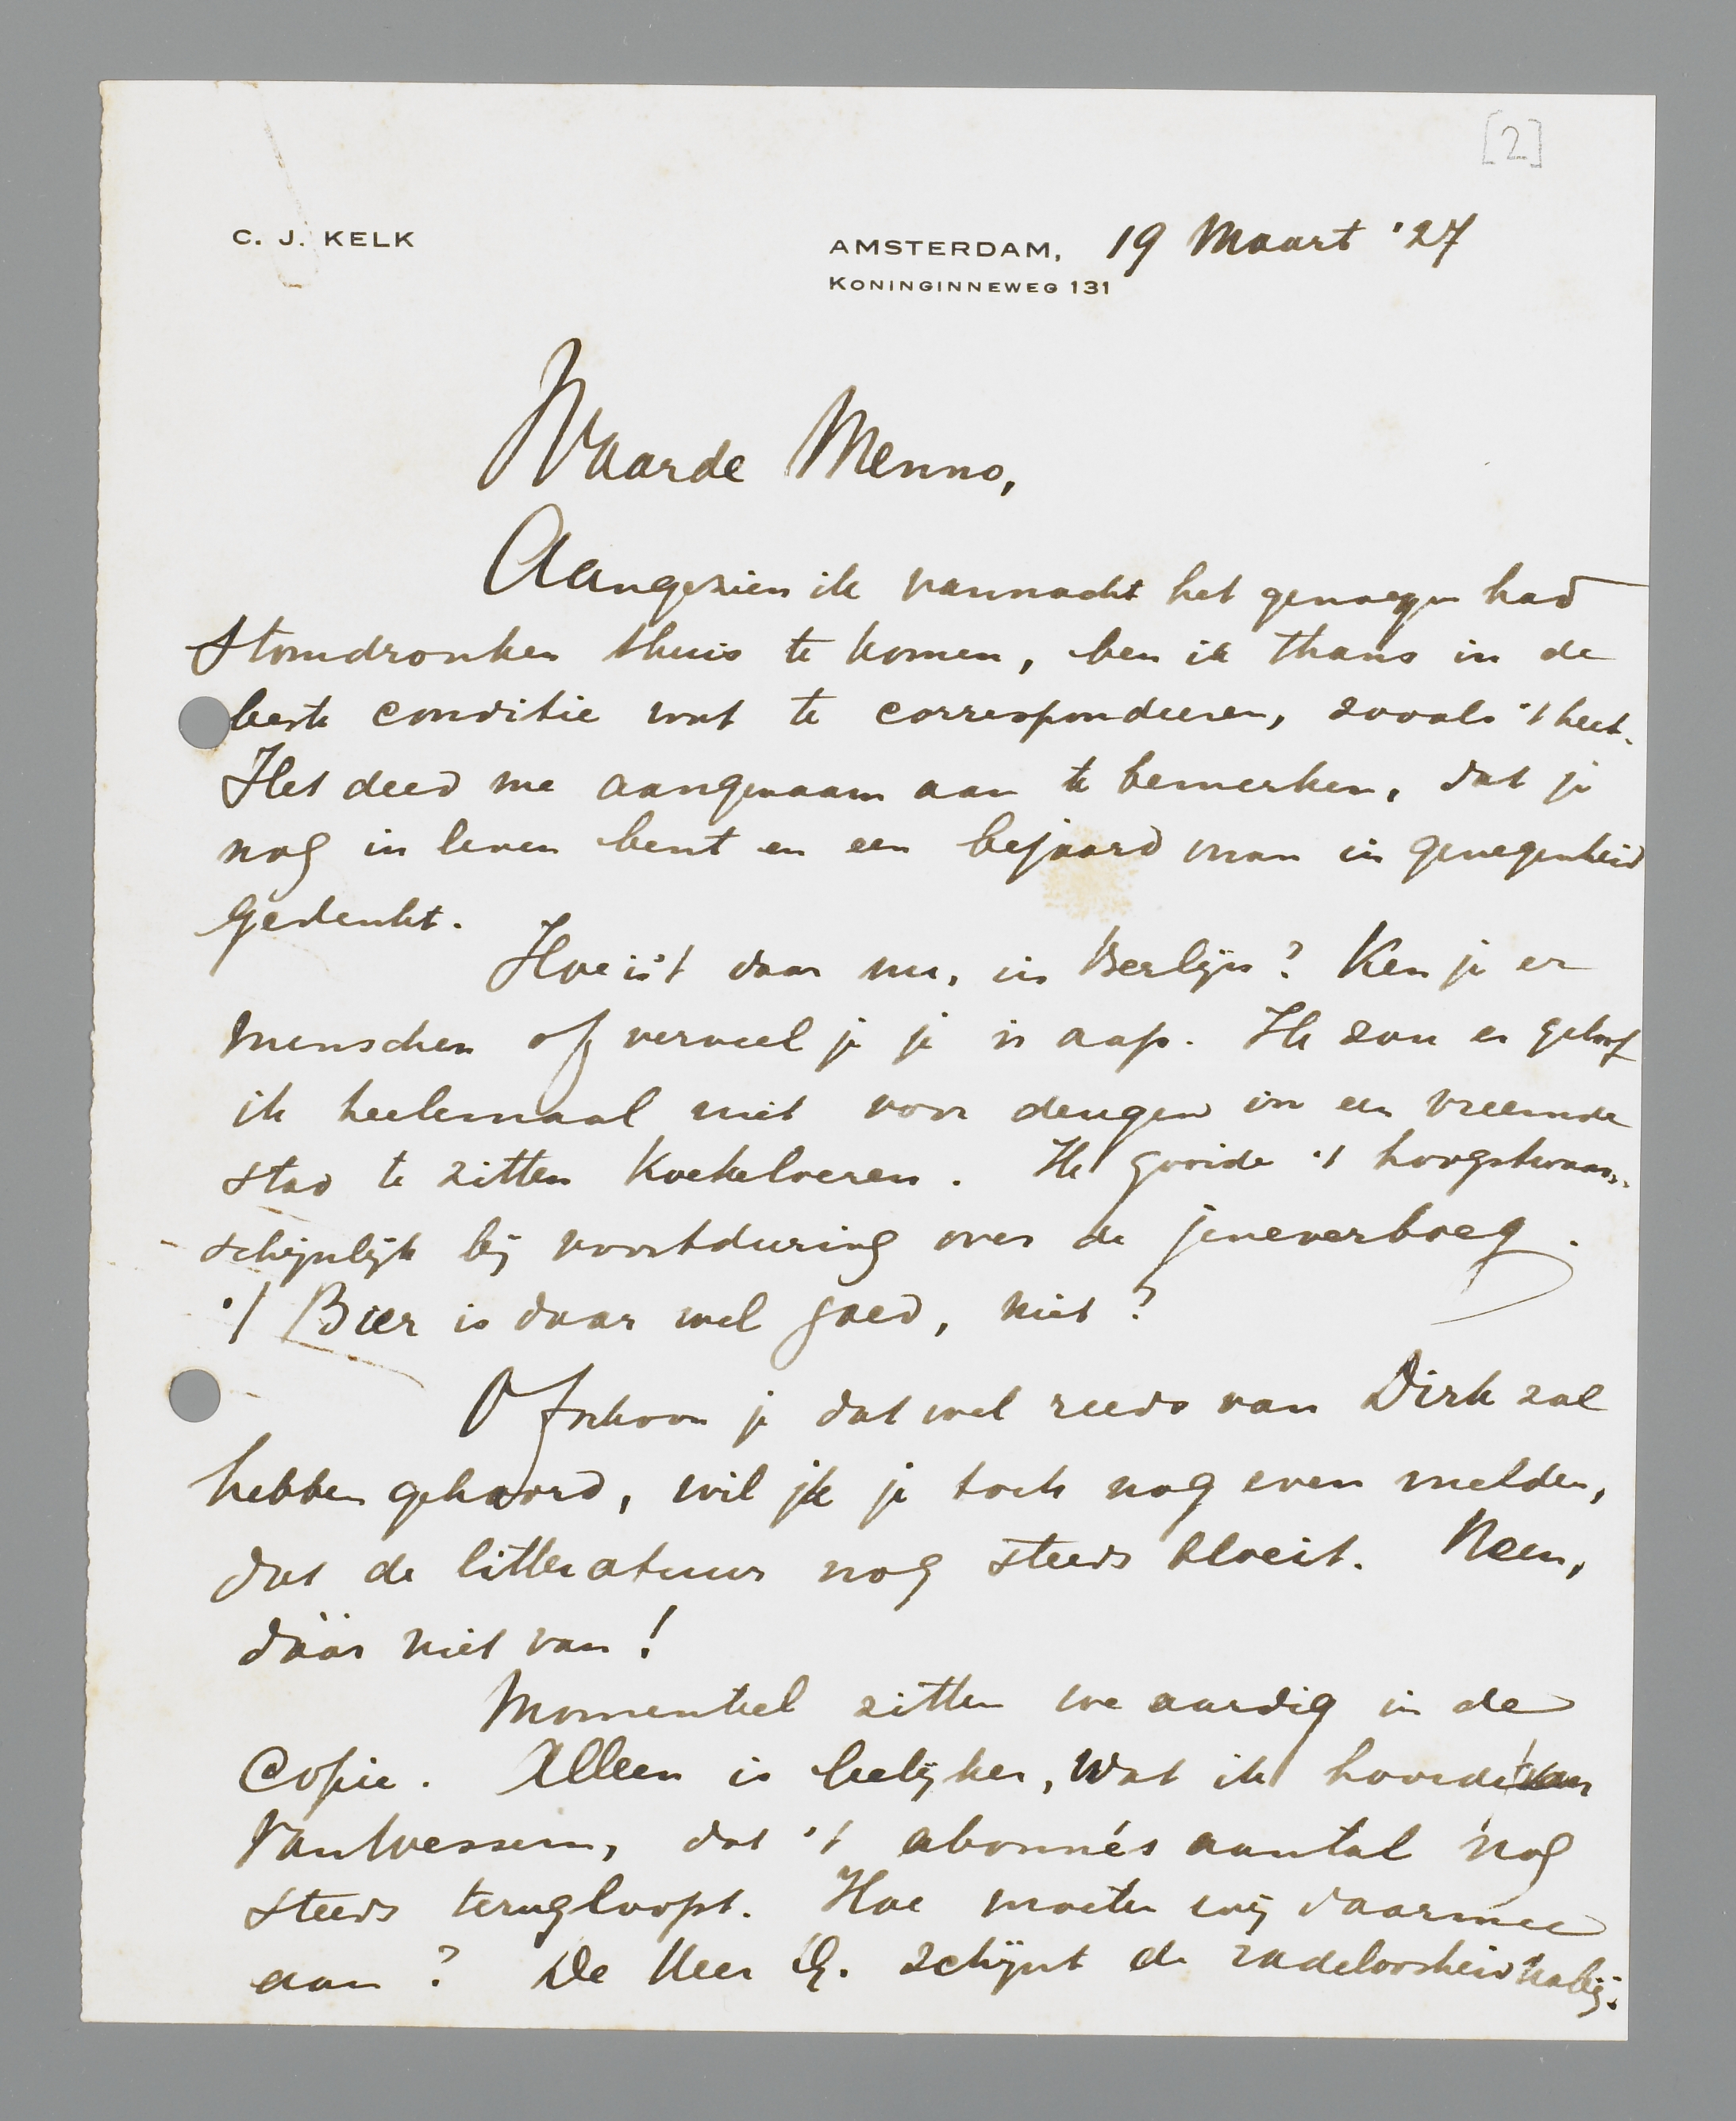 [2]
C. J. KELK
AMSTERDAM, 19 Maart '27
KONINGINNEWEG 131
Waarde Menno,
Aangezien ik vannacht het genoegen had
stomdronken thuis te komen, ben ik thans in de
beste conditie wat te correspondeeren, zooals 't heet.
Het deed me aangenaam aan te bemerken, dat je
nog in leven bent en een bejaard man in genegenheid
gedenkt.
Hoe is 't daar nu, in Berlijn? Ken je er
menschen of verveel je je 'n aap. Ik zou er geloof
ik heelemaal niet voor deugen in een vreemde
stad te zitten koekeloeren. Ik gooide 't hoogstwaar-
schijnlijk bij voortduring over de jeneverboeg.
't Bier is daar wel goed, niet?
Ofschoon je dat wel reeds van Dirk zal
hebben gehoord, wil ik je toch nog even melden,
dat de litteratuur nog steeds bloeit. Neen,
dáár niet van!
Momenteel zitten we aardig in de
copie. Alleen is leelijker, wat ik hoorde van
Van Wessem, dat 't abonnés aantal nog
steeds terugloopt. Hoe moeten wij daarmee
aan? De Heer D. schijnt de radeloosheid nabij.